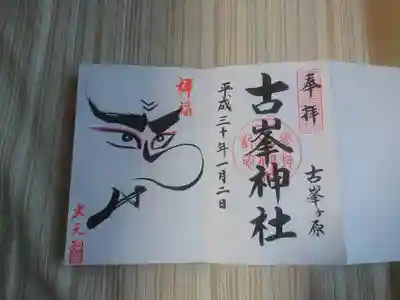 奉拝
古峯ヶ原
古峯神社
平成三十年一月二日
拝福
大天狗